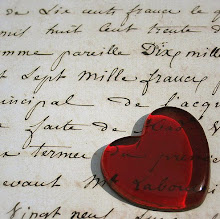 de Six cents francs le
mois huit cent trente d
omme pareille Dix mille
t Sept mille francs p
incipal de l'acq
a faite de
x termes la pres
evant Me
Vingt neuf